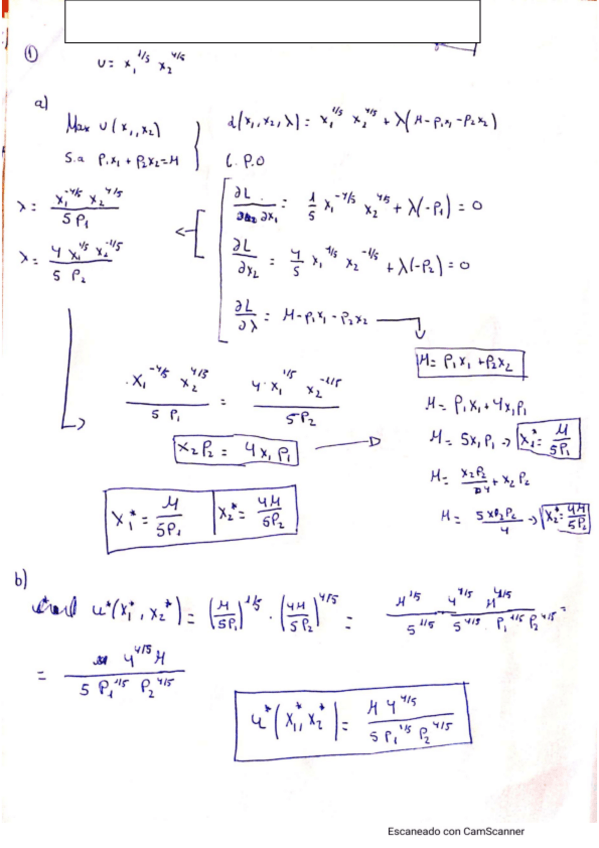 ①
U = x₁^1/5 x₂^4/5
a)
Max U(x₁, x₂)
S.a P₁x₁ + P₂x₂ = M
L(x₁, x₂, λ) = x₁^1/5 x₂^4/5 + λ(M - P₁x₁ - P₂x₂)
C.P.O
∂L/∂x₁ = 1/5 x₁^-4/5 x₂^4/5 + λ(-P₁) = 0
∂L/∂x₂ = 4/5 x₁^1/5 x₂^-1/5 + λ(-P₂) = 0
∂L/∂λ = M - P₁x₁ - P₂x₂
λ = x₁^-4/5 x₂^4/5 / 5P₁
λ = 4 x₁^1/5 x₂^-1/5 / 5 P₂
x₁^-4/5 x₂^4/5 / 5 P₁ = 4·x₁^1/5 x₂^-1/5 / 5P₂
x₂P₂ = 4x₁P₁
M = P₁x₁ + P₂x₂
M = P₁x₁ + 4x₁P₁
M = 5x₁P₁ → x₁* = M/5P₁
M = x₂P₂/4 + x₂P₂
M = 5x₂P₂/4 → x₂* = 4M/5P₂
x₁* = M/5P₁ | x₂* = 4M/5P₂
b)
u*(x₁*, x₂*) = (M/5P₁)^1/5 · (4M/5P₂)^4/5 = M^1/5 4^4/5 M^4/5 / 5^1/5 5^4/5 · P₁^1/5 P₂^4/5 =
= 4^4/5 M / 5 P₁^1/5 P₂^4/5
u*(x₁*, x₂*) = M 4^4/5 / 5 P₁^1/5 P₂^4/5
Escaneado con CamScanner